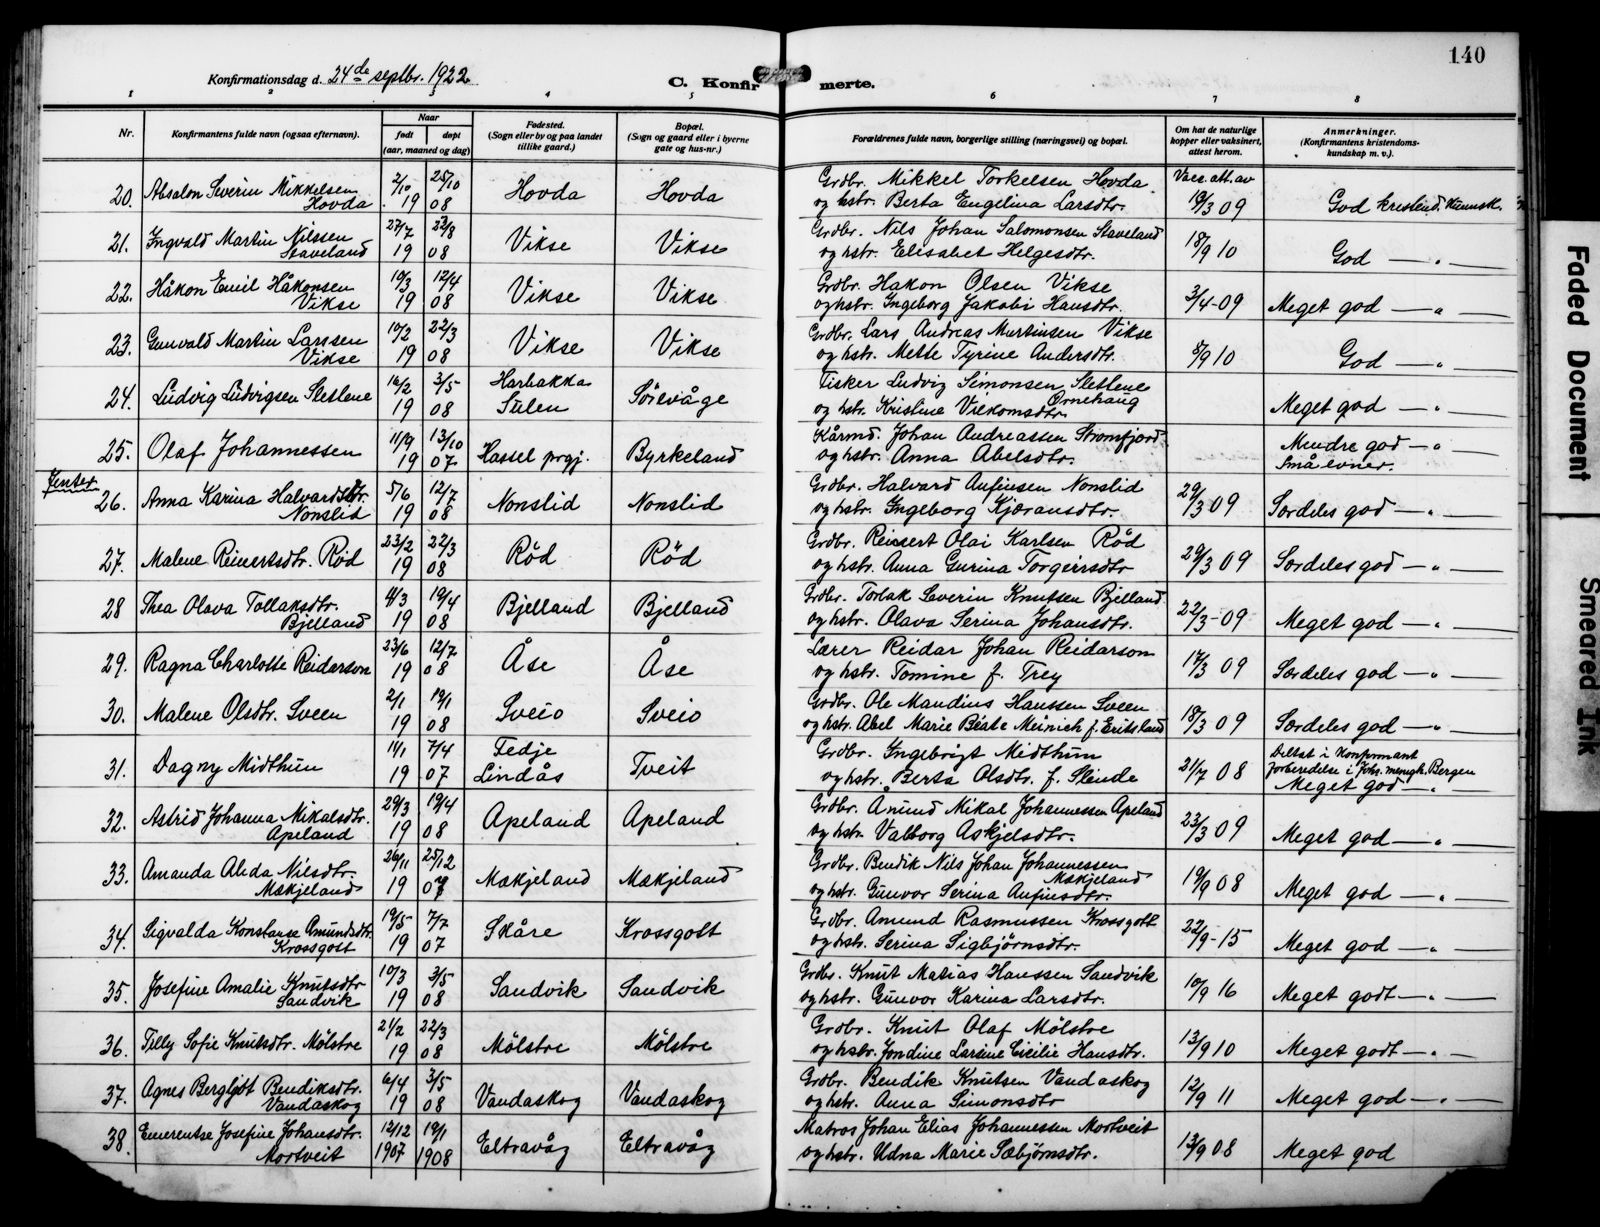 140
Konfirmationsdag d. 24de septbr. 1922
C. Konfirmerte.
1 2 3 4 5 6 7 8
Nr.
Konfirmantens fulde navn (ogsaa efternavn).
Naar
født døpt
(aar, maaned og dag)
Fødested.
(Sogn eller by og paa landet
tillike gaard.)
Bopæl.
(Sogn og gaard eller i byerne
gate og hus-nr.)
Forældrenes fulde navn, borgerlige stilling (næringsvei) og bopæl.
Om hat de naturlige
kopper eller vaksinert,
attest herom.
Anmerkninger.
(Konfirmantens kristendoms-
kundskap m. v.).
Vacs. att. av
20. Absalon Severin Mikkelsen 2/10 25/10 Hovda Hovda Grdbr. Mikkel Torkelsen Hovda
Hovda 19 08 og hstr. Berta Engelina Larsdtr. 19/3 09 God kristend. kunnsk.
21. Ingvald Martin Nilssen 27/7 23/8 Vikse Vikse Grdbr. Nils Johan Salomonsen Staveland
Staveland 19 08 og hstr. Elisabet Helgesdtr. 18/9 10 God — " —
22. Håkon Emil Håkonsen 19/3 12/4 Vikse Vikse Grdbr. Hakon Olsen Vikse
Vikse 19 08 og hstr. Ingeborg Jakobi Hansdtr. 3/4-09 Meget god — " —
23. Gunvald Martin Larssen 10/2 22/3 Vikse Vikse Grdbr. Lars Andreas Martinsen Vikse
Vikse 19 08 og hstr. Mette Tyrine Andersdtr. 8/9 10 God — " —
24. Ludvig Ludvigsen Slettene 16/2 3/5 Harbakka Sörevåge Fisker Ludvig Simonsen Slettene
Ornehaug
19 08 Sulen og hstr. Kristine Vilkomsdtr. Meget god — " —
25. Olaf Johannessen 11/9 13/10 Hassel prgj. Byrkeland Kårmd. Johan Andreassen Strømfjord Mindre god — "
19 07 og hstr. Anna Abelsdtr. Små evner.
Jenter
26. Anna Karina Halvardsdtr. 5/6 12/7 Nonslid Nonslid Grdbr. Halvard Anfinsen Nonslid
Nonslid 19 08 og hstr. Ingeborg Kjæransdtr. 29/3 09 Særdeles god — " —
27. Malene Reinertsdtr. Rød 23/2 22/3 Rød Rød Grdbr. Reinert Olai Karlsen Rød
19 08 og hstr. Anna Gurina Torgeirsdtr 29/3 09 Særdeles god — " —
28 Thea Olava Tollaksdtr. 4/3 19/4 Bjelland Bjelland Grdbr. Torlak Severin Knutsen Bjelland
Bjelland 19 08 og hstr. Olava Serina Johansdtr. 22/3-09 Meget god — " —
29. Ragna Charlotte Reidarson 23/6 12/7 Åse Åse Lærer Reidar Johan Reidarson
19 08 og hstr. Tomine f. Trey 17/3 09 Særdeles god — " —
30. Malene Olsdtr. Sveen 2/1 19/1 Sveio Sveio Grdbr. Ole Mandius Hanssen Sveen
19 08 og hstr. Abel Marie Béate Meinich f. Eriksland 18/3 09 Særdeles god — "
31. Dagny Midthun 14/1 7/4 Fedje Tveit Grdbr. Ingebrigt Midthun Deltat i Konfirmant
19 07 Lindås og hstr. Berta Olsdtr. f. Slende 21/7 08 forberedelse i Johs. mengh. Bergen
Meget god — "
32. Astrid Johanna Mikalsdtr. 29/3 19/4 Apeland Apeland Grdbr. Ånund Mikal Johannessen Apeland
Apeland 19 08 og hstr. Valborg Askjelsdtr. 23/3 09 Meget god — " —
33. Amanda Alida Nilsdtr. 26/11 25/12 Mækjeland Mækjeland Grdbr. Bendik Nils Johan Johannessen
Mækjeland
Mækjeland 19 07 og hstr. Gunvor Serina Anfinsdtr. 19/9 08 Meget god — "
34. Sigvalda Konstanse Amundsdtr. 19/5 7/7 Skåre Krossgott Grdbr. Amund Rasmussen Krossgott
Krossgott 19 07 og hstr. Serina Sigbjørnsdtr. 22/9-15 Meget god — " —
35. Josefine Amalie Knutsdtr 10/3 3/5 Sandvik Sandvik Grdbr. Knut Matias Hanssen Sandvik
Sandvik 19 08 og hstr. Gunvor Karina Larsdtr. 10/9 16 Meget godt — " —
36. Tilly Sofie Knutsdtr. Mølstre 21/2 22/3 Mølstre Mølstre Grdbr. Knut Olaf Mølstre
19 08 og hstr. Jondine Larsine Cicilie Hansdtr. 13/9 10 Meget godt — " —
37. Agnes Bergljot Bendiksdtr. 6/4 3/5 Vandaskog Vandaskog Grdbr. Bendik Knutsen Vandaskog
Vandaskog 19 08 og hstr. Anna Simonsdtr 12/9 11 Meget god — " —
38. Emerentse Josefine Johansdtr. 12/12 19/1 Eltravåg Eltravåg Matros Johan Elias Johannessen Mortveit
Mortveit 1907 1908 og hstr. Udna Marie Sæbjørnsdtr. 13/9 08 Meget god
Faded Document
Smeared Ink